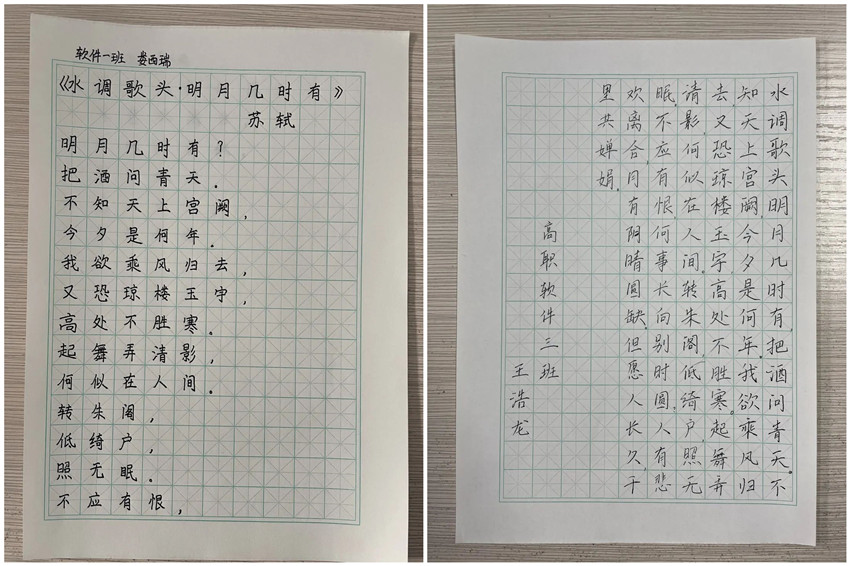 软件一班 娄西瑞
《水调歌头·明月几时有》
苏轼
明月几时有？
把酒问青天。
不知天上宫阙，
今夕是何年。
我欲乘风归去，
又恐琼楼玉宇，
高处不胜寒。
起舞弄清影，
何似在人间。
转朱阁，
低绮户，
照无眠。
不应有恨，
水调歌头明月几时有，把酒问青天。不
知天上宫阙，今夕是何年。我欲乘风归
去，又恐琼楼玉宇，高处不胜寒。起舞弄
清影，何似在人间。转朱阁，低绮户，照无
眠，不应有恨，何事长向别时圆。人有悲
欢离合，月有阴晴圆缺。但愿人长久，千
里共婵娟。
高职软件三班
王浩龙